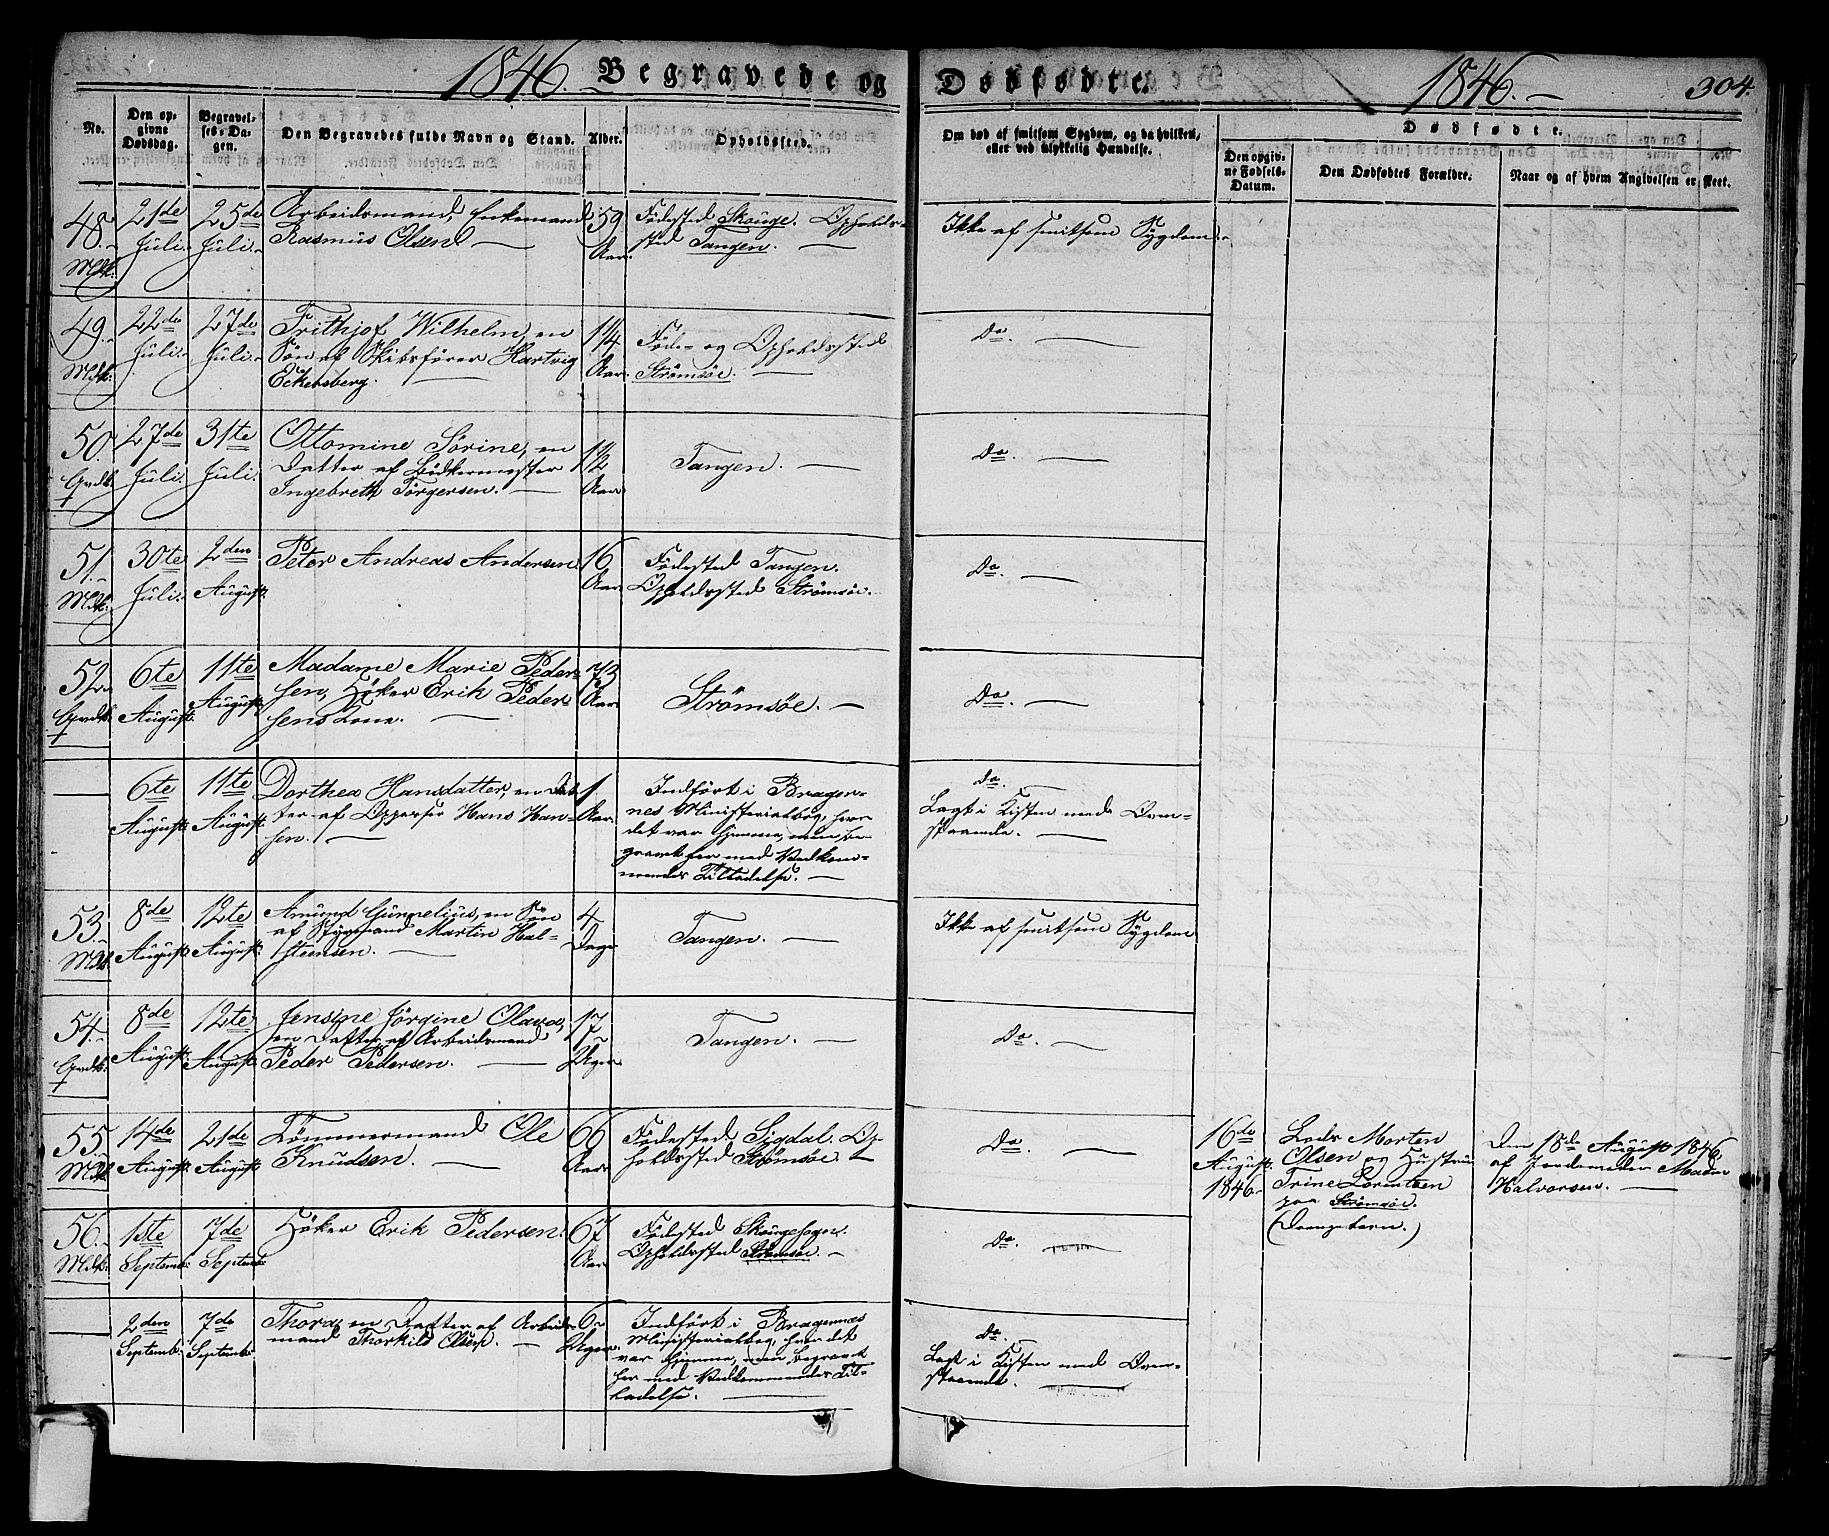 1846. Begravede og Dødfødte. 1846. 304.
No.
Den op-
givne
Dødsdag.
Begravel-
ses-Da-
gen.
Den Begravedes fulde Navn og Stand.
Alder.
Opholdssted.
Om død af smitsom Sygdom, og da hvilken,
eller ved ulykkelig Hændelse.
Dødfødte.
Den opgiv-
ne Fødsels-
Datum.
Den Dødfødtes Forældre.
Naar og af hvem Angivelsen er skeet.
48.
Mdk.
21de
Juli.
25de
Juli.
Arbeidsmand, Enkemand
Rasmus Olsen
59
Aar.
Fødested Skouge. Opholds-
sted Tangen.
Ikke af smitsom Sygdom.
49.
Mdk.
22de
Juli.
27de
Juli.
Frithjof Wilhelm, en
Søn af Skibsfører Hartvig
Eckersberg.
14
Aar.
Føde- og Opholdssted
Strømsøe.
Do.
50.
Qvdk.
27de
Juli.
31te
Juli.
Ottomine Sørine, en
Datter af Bødkermester
Ingebreth Törgersen.
1½
Aar
Tangen.
Do.
51.
Mdk.
30te
Juli.
2den
August.
Peter Andreas Andersen
16
Aar
Fødested Tangen.
Opholdssted Strømsøe.
Do.
52.
Qvdk.
6te
August.
11te
August.
Madame Marie Peder-
sen, Høker Erik Peder-
sens Kone.
73
Aar.
Strømsøe.
Do.
6te
August.
11te
August.
Dorthea Hansdatter, en Dat-
ter af Oppasser Hans Han-
sen.
1
Aar.
Indført i Bragen-
nes Ministerialbog, hvor
det var hjemme, men be-
gravet her med Vedkom-
mendes Tilladelse.
Do.
Lagt i Kisten med Oven-
staaende.
53.
Mdk.
8de
August.
12te
August.
Amund Gunnelius, en Søn
af Styrmand Martin Hal-
steensen.
4
Dage
Tangen.
Ikke af smitsom Sygdom
54.
Qvdk.
8de
August.
12te
August.
Jensine Jörgine Olava,
en Datter af Arbeidsmand
Peder Pedersen.
17
Uger.
Tangen.
Do.
55.
Mdk.
14de
August.
21de
August.
Tømmermand Ole
Knudsen.
66
Aar.
Fødested Sigdal. Op-
holdssted Strømsøe.
Do.
16de
August.
1846.
Lods Morten
Olsen og Hustru
Trine Lorentsen
paa Strømsøe.
(Drengebarn.)
Den 18de August 1846.
af Jordemoder Madm
Halvorsen.
56.
Mdk.
1ste
Septembr.
7de
Septembr.
Høker Erik Pedersen.
67
Aar
Fødested Skougesogn.
Opholdssted Strømsøe.
Do.
2den
Septembr.
7de
Septembr.
Thora, en Datter af Arbeids-
mand Thorkild Olsen.
6
Uger.
Indført i Bragernæs
Ministerialbog, hvor det
var hjemme, men begravet
her med Vedkommendes Til-
ladelse.
Do.
Lagt i Kisten med Oven-
staaende.